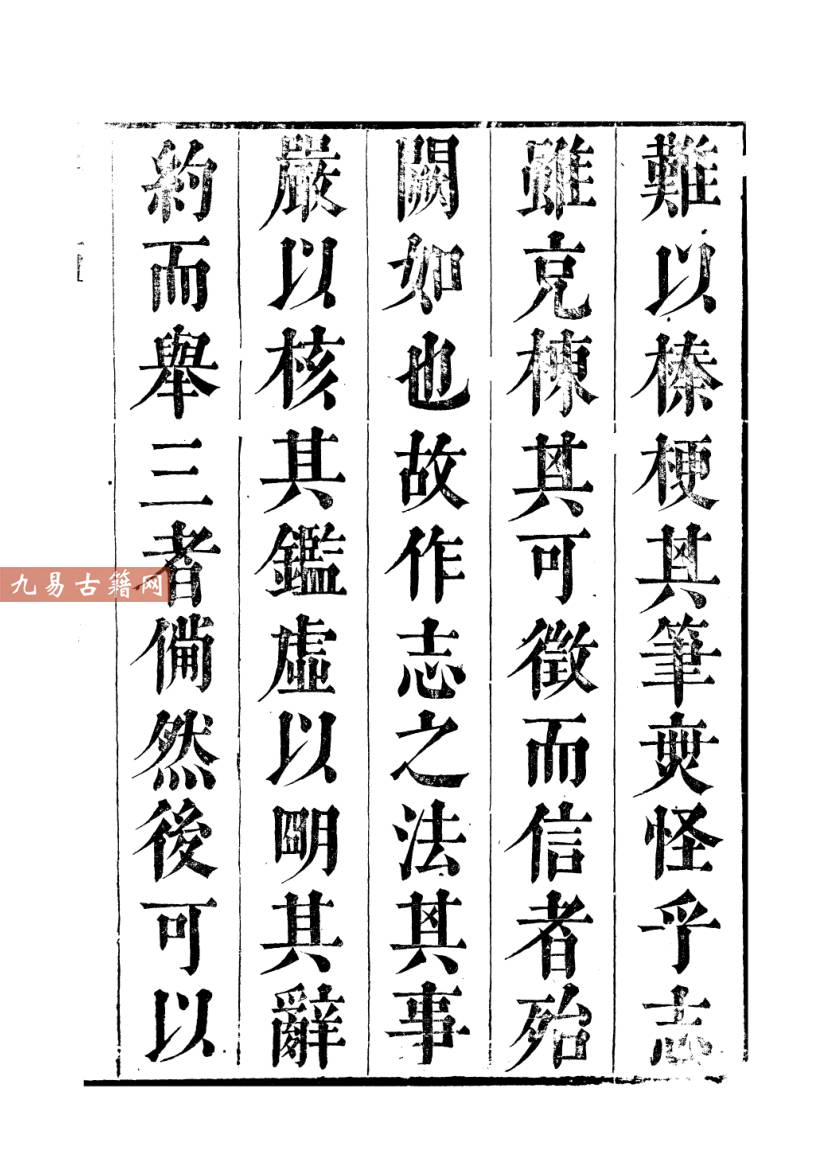 難以榛梗其筆奚怪乎志
雖充棟其可徵而信者殆
闕如也故作志之法其事
嚴以核其鑑虛以朙其辭
約而舉三者備然後可以
九易古籍网